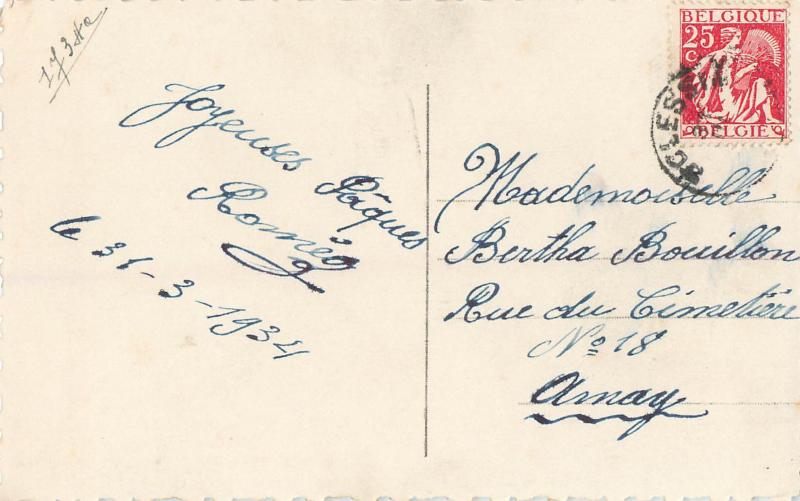 Joyeuses Pâques
Roméo
le 31-3-1934
BELGIQUE
25
C
BELGIË
Mademoiselle
Bertha Bouillon
Rue du Cimetière
No 18
Amay